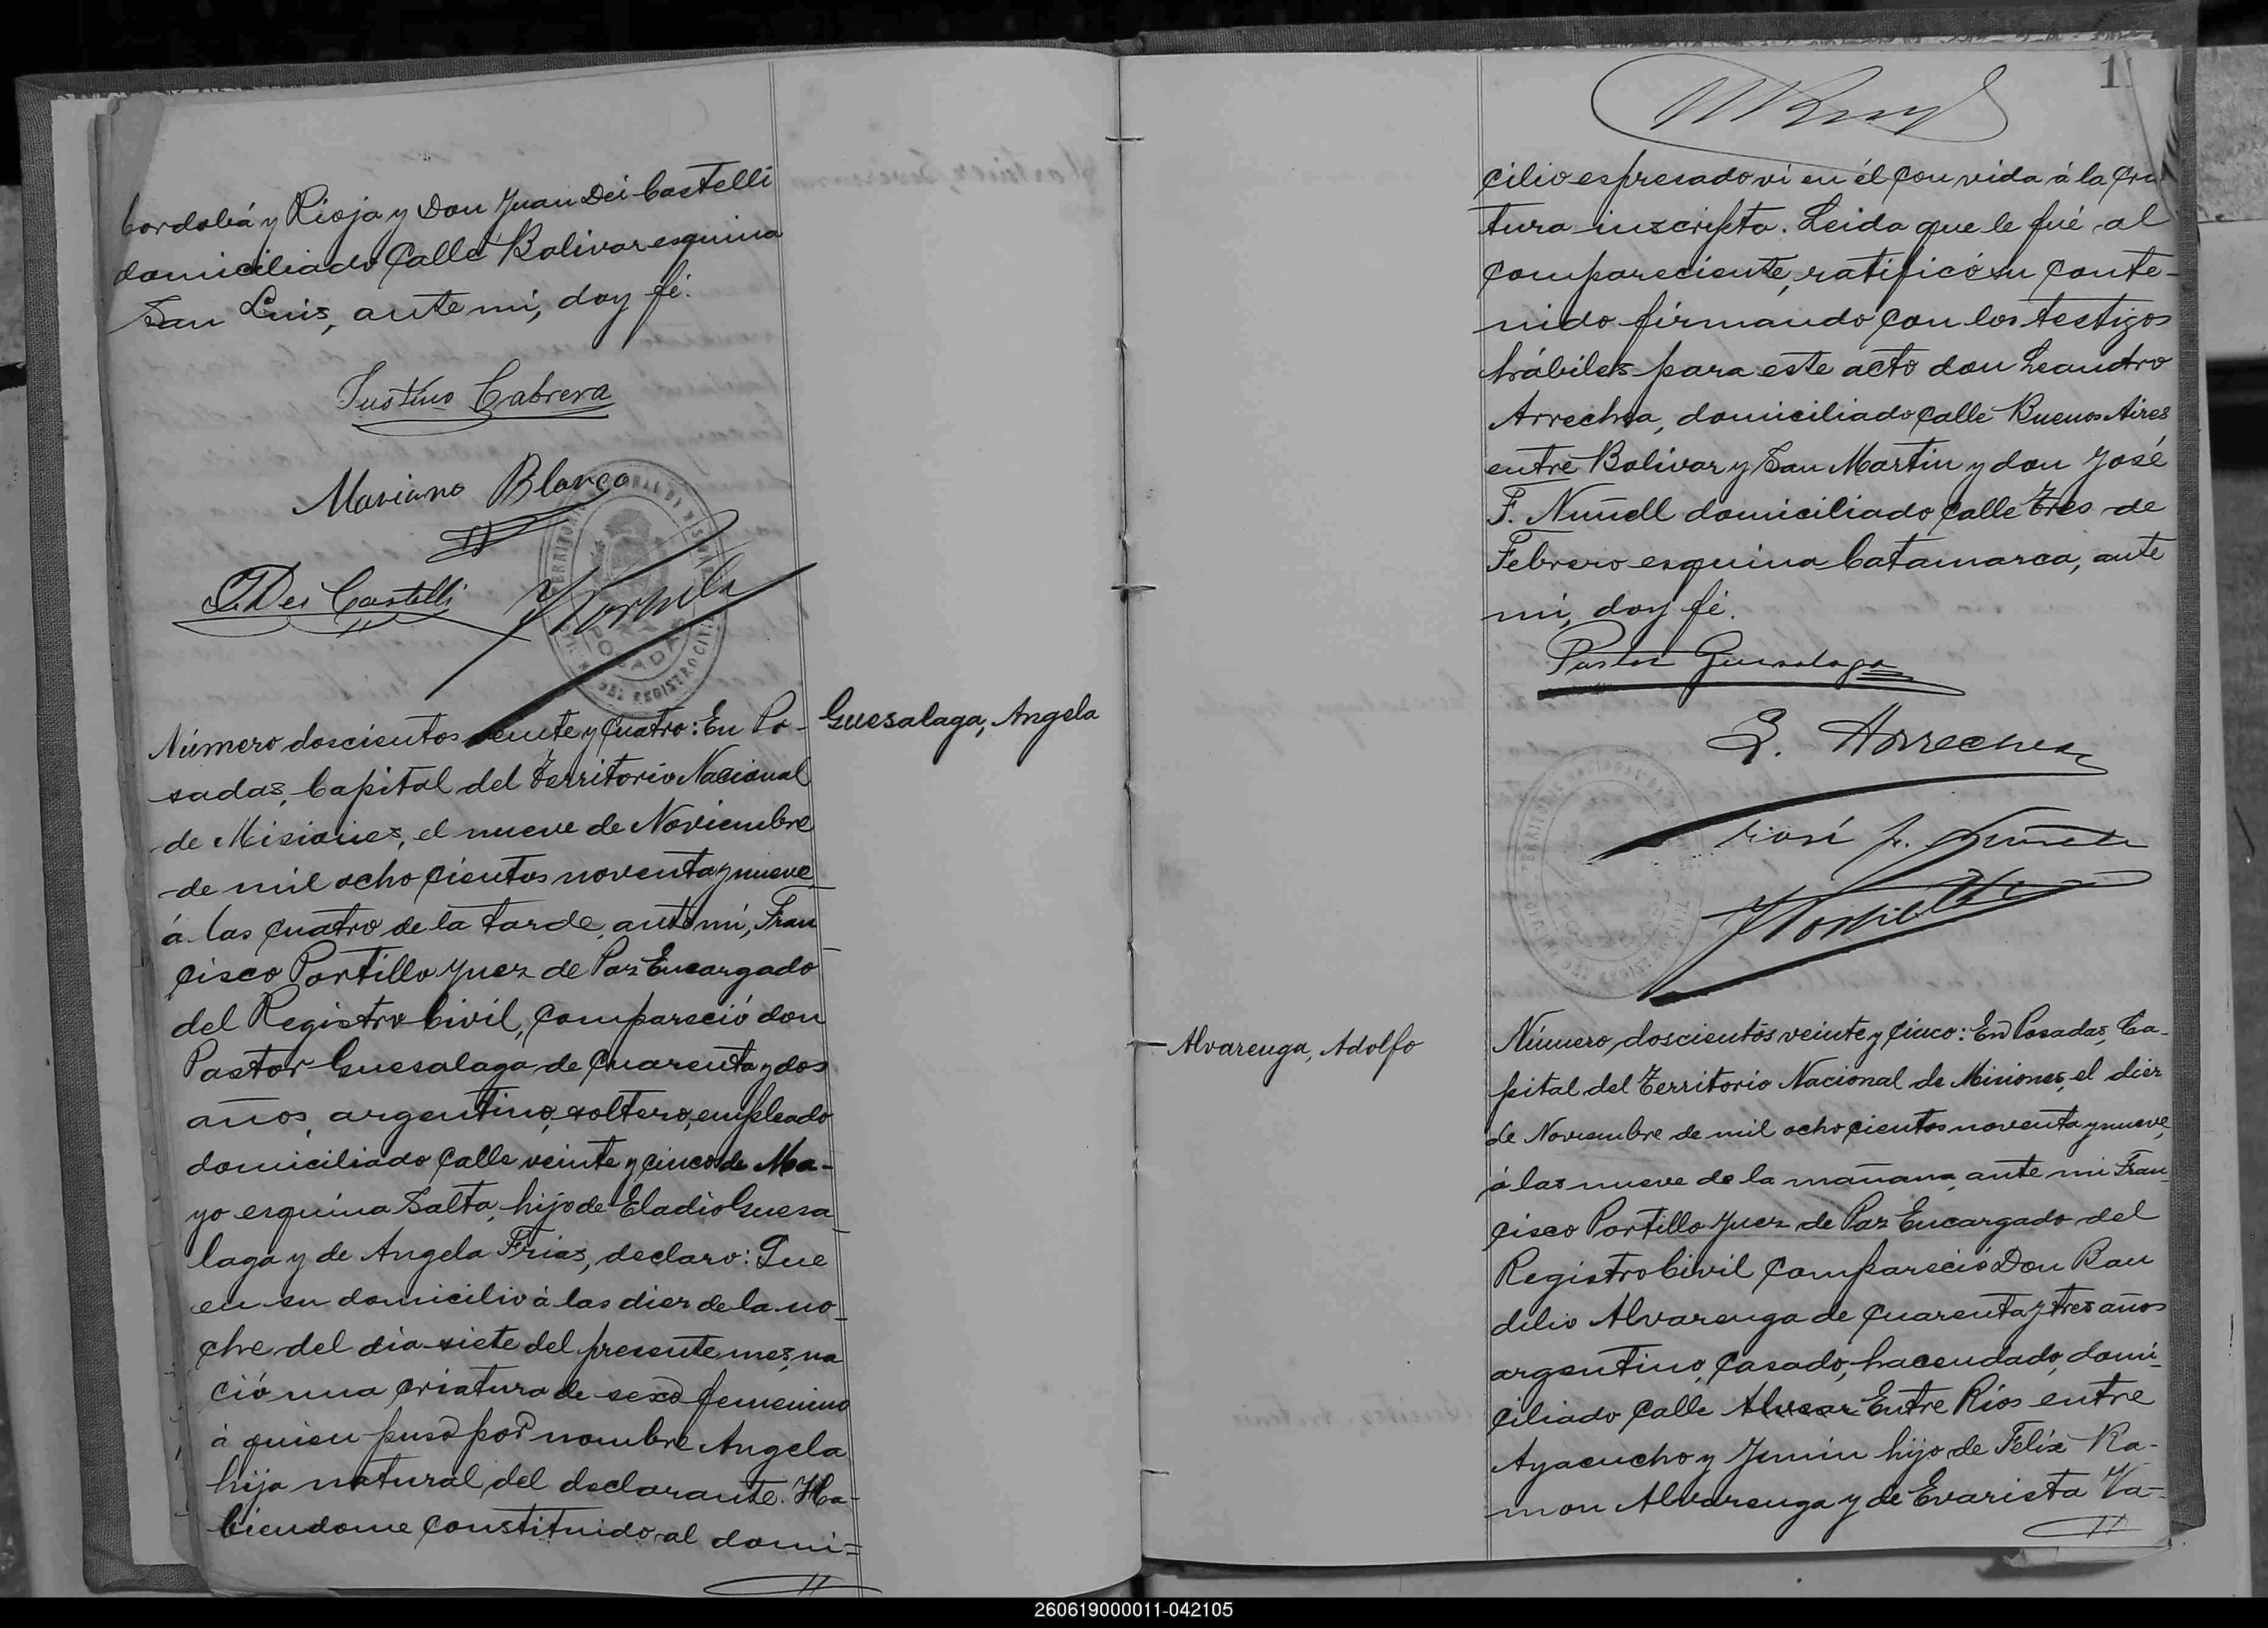 Cordobá y Rioja y Don Juan Dei Castelli
domiciliado Calle Bolivar esquina
San Luis, ante mi, doy fé.
Justino Cabrera
Mariano Blanco
J. Dei Castelli
POSADAS
Número doscientos veinte y cuatro: En Po-
sadas, Capital del Territorio Nacional
de Misiones, el nueve de Noviembre
de mil ocho cientos noventa y nueve
á las cuatro de la tarde, ante mi, Fran
cisco Portillo Juez de Paz Encargado
del Registro Civil, compareció don
Pastor Guesalaga de cuarenta y dos
años, argentino, soltero, empleado
domiciliado calle veinte y cinco de Ma-
yo esquina Salta, hijo de Eladio Guesa
laga y de Angela Frias, declaro: Que
en su domicilio á las diez de la no-
che del dia siete del presente mes, na
ció una criatura de sexo femenino
á quien puso por nombre Angela
hija natural del declarante. Ha-
biendome constituido al domi=
Guesalaga, Angela
1
cilio espresado vi en él con vida á la cria
tura inscripta. Leida que le fué al
compareciente, ratificó su conte-
nido firmando con los testigos
hábiles para este acto don Leandro
Arrechea, domiciliado calle Buenos Aires
entre Bolivar y San Martin y don José
F. Nuñell domiciliado calle Tres de
Febrero esquina Catamarca, ante
mi, doy fé.
Pastor Guesalaga
L. Arrechea
José F. Nuñell
Alvarenga, Adolfo
Número doscientos veinte y cinco: En Posadas, Ca-
pital del Territorio Nacional de Misiones, el diez
de Noviembre de mil ocho cientos noventa y nueve,
á las nueve de la mañana, ante mi Fran
cisco Portillo Juez de Paz Encargado del
Registro Civil compareció Don Ban
dilio Alvarenga de cuarenta y tres años
argentino, casado, hacendado, domi-
ciliado calle Alvear Entre Ríos entre
Ayacucho y Junin hijo de Felix Ra-
mon Alvarenga y de Evarista Va-
260619000011-042105